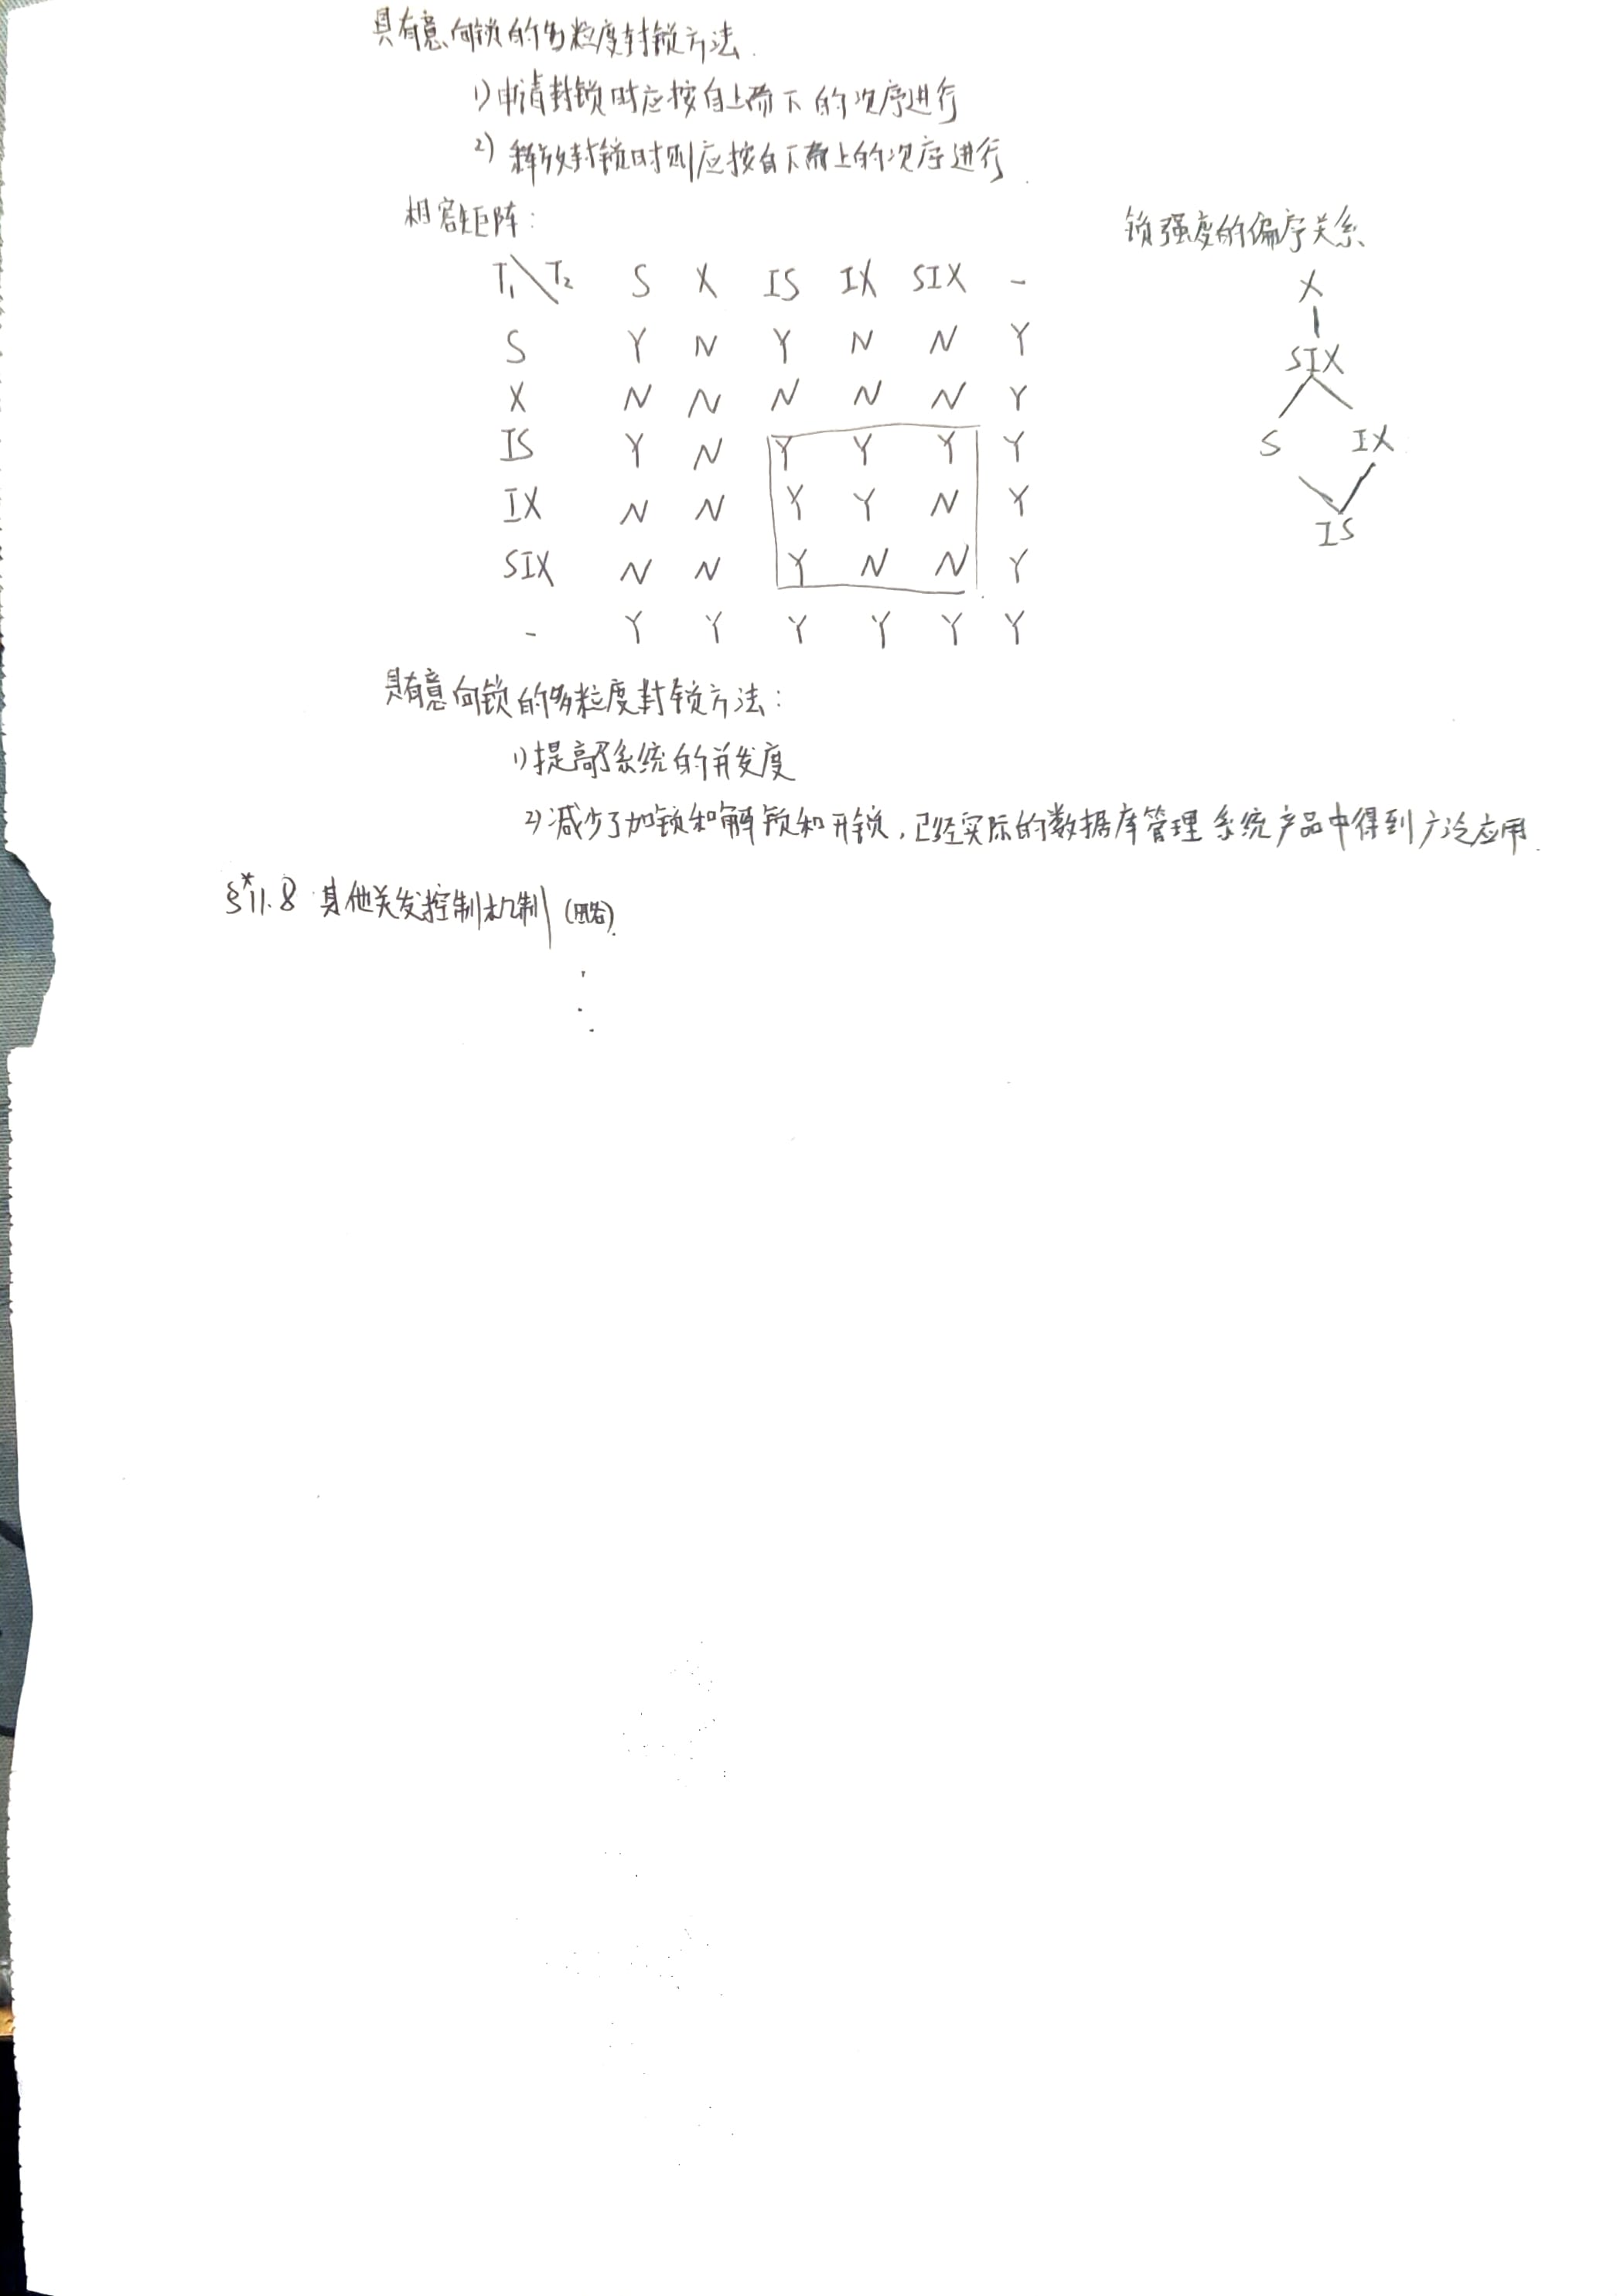 具有意向锁的多粒度封锁方法.
1) 申请封锁时应按自上而下的次序进行
2) 释放封锁时则应按自下而上的次序进行.
相容矩阵:
锁强度的偏序关系
T₁\T₂ S X IS IX SIX -
S Y N Y N N Y
X N N N N N Y
IS Y N Y Y Y Y
IX N N Y Y N Y
SIX N N Y N N Y
- Y Y Y Y Y Y
X
SIX
S IX
IS
具有意向锁的多粒度封锁方法:
1) 提高了系统的并发度
2) 减少了加锁和解锁和开锁,已经实际的数据库管理系统产品中得到广泛应用.
§*11.8 其他关发控制机制 (略).